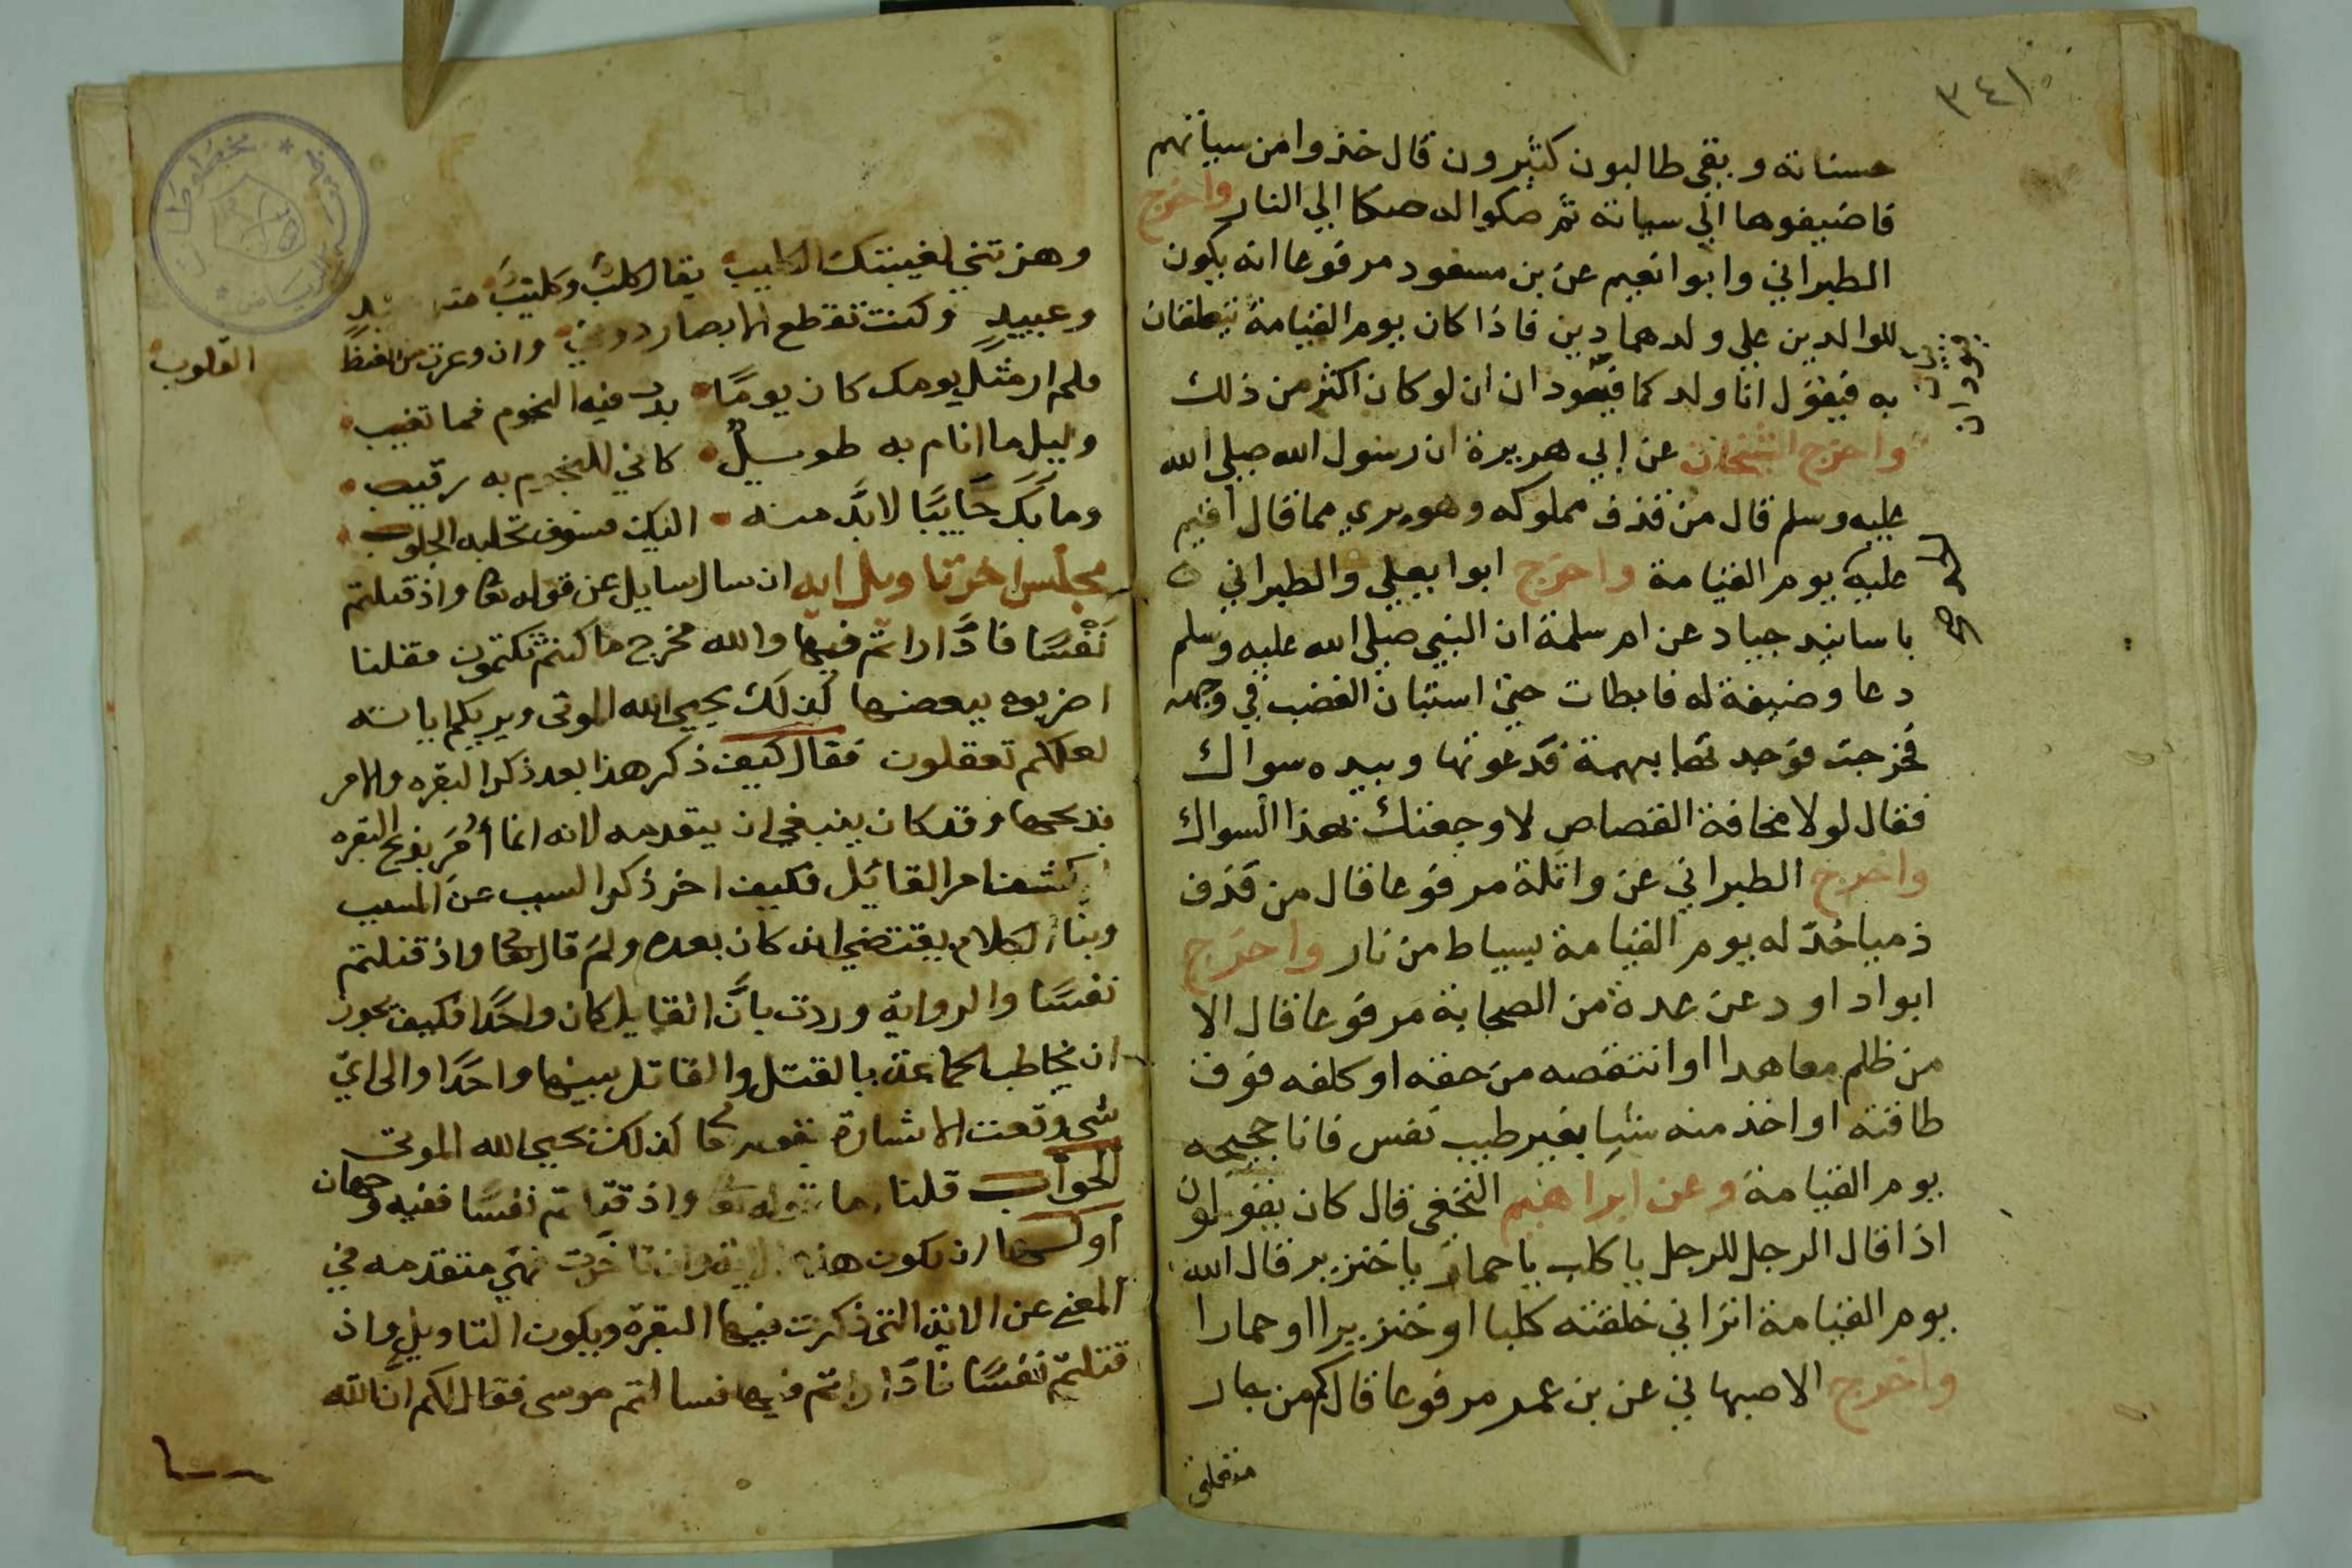 ٣٤١
حسناته وبقي طالبون كثيرون قال خذوا من سياتهم
فاضيفوها الي سياته ثم صكوا له صكا الي النار واخرج
الطبراني وابوا نعيم عن بن مسعود مرفوعا انه يكون
للوالدين علي ولدهما دين فاذا كان يوم القيامة يتعلقان
به فيقول انا ولدكما فيودان ان لو كان اكثر من ذلك
واخرج الشيخان عن ابي هريرة ان رسول الله صلي الله
عليه وسلم قال من قذف مملوكه وهو بري مما قال اقيم
عليه يوم القيامة واخرج ابوا يعلي والطبراني
باسانيد جياد عن ام سلمة ان النبي صلي الله عليه وسلم
دعا وصيفة له فابطات حتي استبان الغضب في وجهه
فخرجت فوجدتها بهمة فدعوتها وبيده سواك
فقال لولا مخافة القصاص لاوجعتك بهذا السواك
واخرج الطبراني عن واثلة مرفوعا قال من قذف
ذميا حد له يوم القيامة بسياط من نار واخرج
ابوا داود عن عدة من الصحابة مرفوعا قال الا
من ظلم معاهدا او انتقصه من حقه او كلفه فوق
طاقته او اخذ منه شيا بغير طيب نفس فانا حجيجه
يوم القيامة وعن ابراهيم النخعي قال كان يقولون
اذا قال الرجل للرجل يا كلب يا حمار يا خنزير قال الله
يوم القيامة اتراني خلقته كلبا او خنزيرا او حمارا
واخرج الاصبهاني عن بن عمر مرفوعا قال كم من جار
متعلق
يودان
الحد
وهزتني لغيبتك الكليب يقال كلب وكليب
وعبيد وكنت تقطع الابصار دوني وان وغرت من الغيظ
القلوب
ولم ار مثل يومك كان يومًا بدت فيه النجوم فما تغيب
وليل ما انام به طويل كاني للنجوم به رقيب
وما يك جاييًا لا بدّ منه اليك فسوف تجلبه الجلوب
مجلس اخر تاويل ايه ان سال سايل عن قوله تعا واذ قتلتم
نَفْسًا فادّاراتم فيها والله مخرج ما كنتم تكتمون فقلنا
اضربوه ببعضها كذلك يحيي الله الموتى ويريكم اياته
لعلكم تعقلون فقال كيف ذكر هذا بعد ذكر البقره والامر
بذبحها وقد كان ينبغي ان يتقدمه لانه انما اُمِرَ بذبح البقره
ليكشف امر القاتل فكيف اخر ذكر السبب عن المسبب
وبنا الكلام يقتضي انه كان بعده ولم قال تعا واذ قتلتم
نفسًا والرواية وردت بانّ القاتل كان واحدًا فكيف يجوز
ان يخاطب الجماعة بالقتل والقاتل بينها واحدًا والى ايّ
شي وقعت الاشارة بقوله تعا كذلك يحيي الله الموتى
الجواب قلنا اما قوله تعا واذ قتلتم نفسًا ففيه وجهان
اولهما ان تكون هذه الاية وان تاخرت فهي متقدمه في
المعنى عن الاية التي ذكرت فيها البقرة ويكون التاويل واذ
قتلتم نفسًا فادّاراتم فيها فسالتم موسى فقال لكم انّ الله
مخطوطات
الرياض